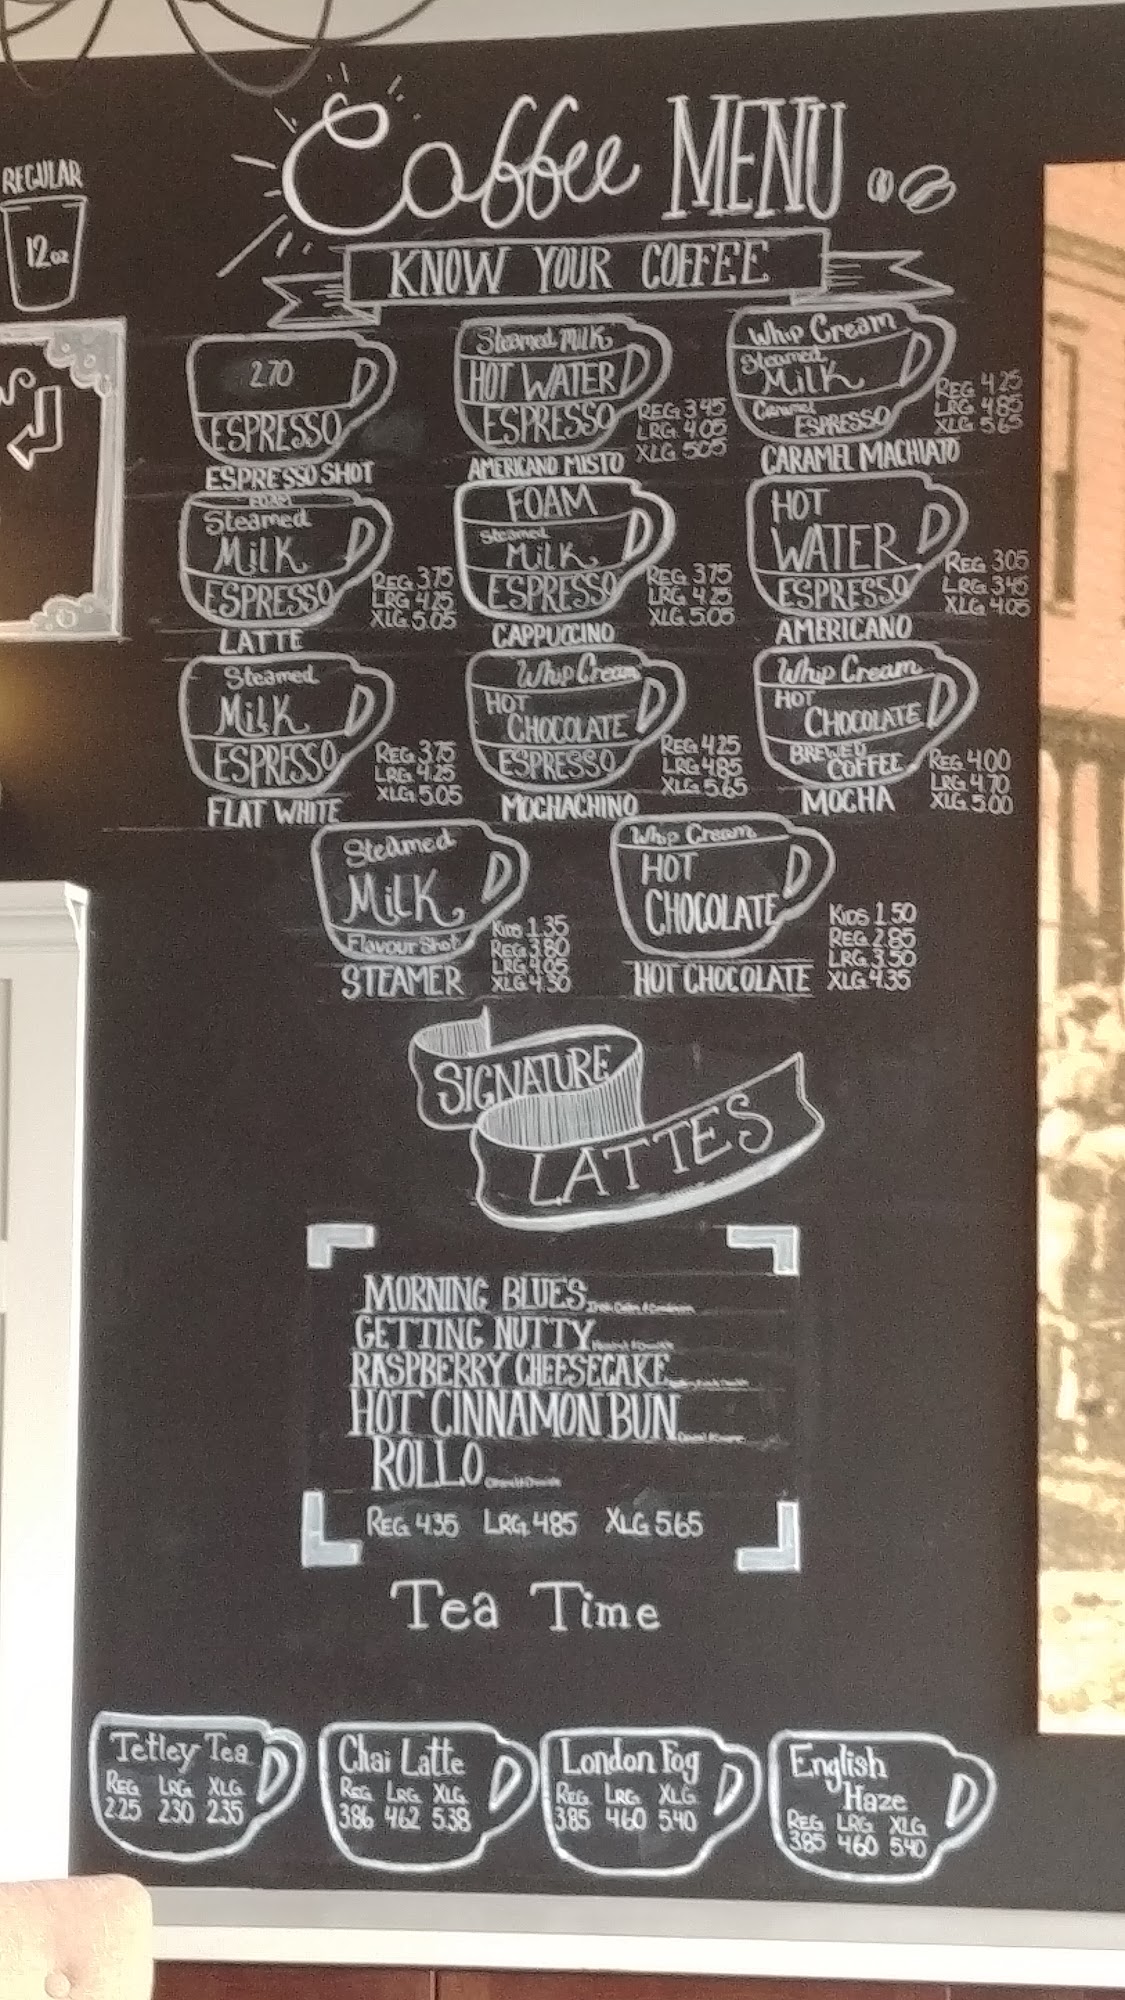 REGULAR
12oz
Coffee MENU
KNOW YOUR COFFEE
2.70
ESPRESSO
ESPRESSO SHOT
Steamed Milk
HOT WATER
ESPRESSO
REG 3.45
LRG 4.05
XLG 5.05
AMERICANO MISTO
Whip Cream
Steamed
Milk
Caramel
ESPRESSO
REG 4.25
LRG 4.85
XLG 5.65
CARAMEL MACHIATO
FOAM
Steamed
Milk
ESPRESSO
REG 3.75
LRG 4.25
XLG 5.05
LATTE
FOAM
Steamed
Milk
ESPRESSO
REG 3.75
LRG 4.25
XLG 5.05
CAPPUCCINO
HOT
WATER
ESPRESSO
REG 3.05
LRG 3.45
XLG 4.05
AMERICANO
Steamed
Milk
ESPRESSO
REG 3.75
LRG 4.25
XLG 5.05
FLAT WHITE
Whip Cream
HOT
CHOCOLATE
ESPRESSO
REG 4.25
LRG 4.85
XLG 5.65
MOCHACHINO
Whip Cream
HOT
CHOCOLATE
BREWED
COFFEE
REG 4.00
LRG 4.70
XLG 5.00
MOCHA
Steamed
Milk
Flavour Shot
KIDS 1.35
REG 3.80
LRG 4.05
XLG 4.30
STEAMER
Whip Cream
HOT
CHOCOLATE
KIDS 1.50
REG 2.85
LRG 3.50
XLG 4.35
HOT CHOCOLATE
SIGNATURE
LATTES
MORNING BLUES
GETTING NUTTY
RASPBERRY CHEESECAKE
HOT CINNAMON BUN
ROLLO
REG 4.35 LRG 4.85 XLG 5.65
Tea Time
Tetley Tea
REG LRG XLG
2.25 2.30 2.35
Chai Latte
REG LRG XLG
3.86 4.62 5.38
London Fog
REG LRG XLG
3.85 4.60 5.40
English
Haze
REG LRG XLG
3.85 4.60 5.40